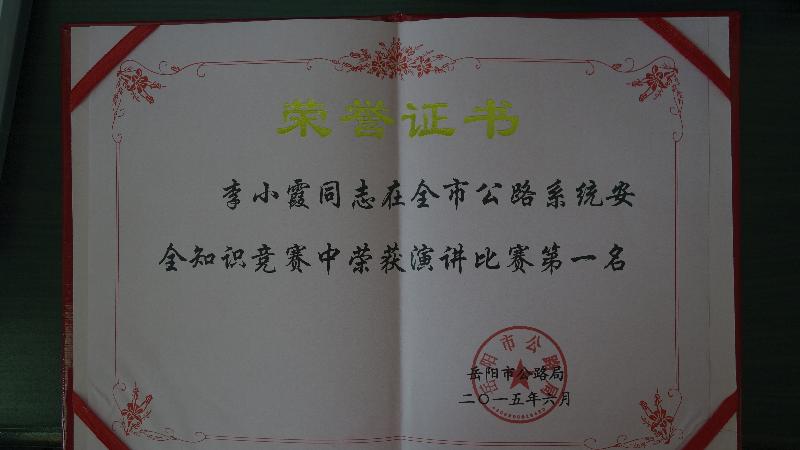 荣誉证书
李小霞同志在全市公路系统安
全知识竞赛中荣获演讲比赛第一名
岳阳市公路局
岳阳市公路局
二〇一五年六月